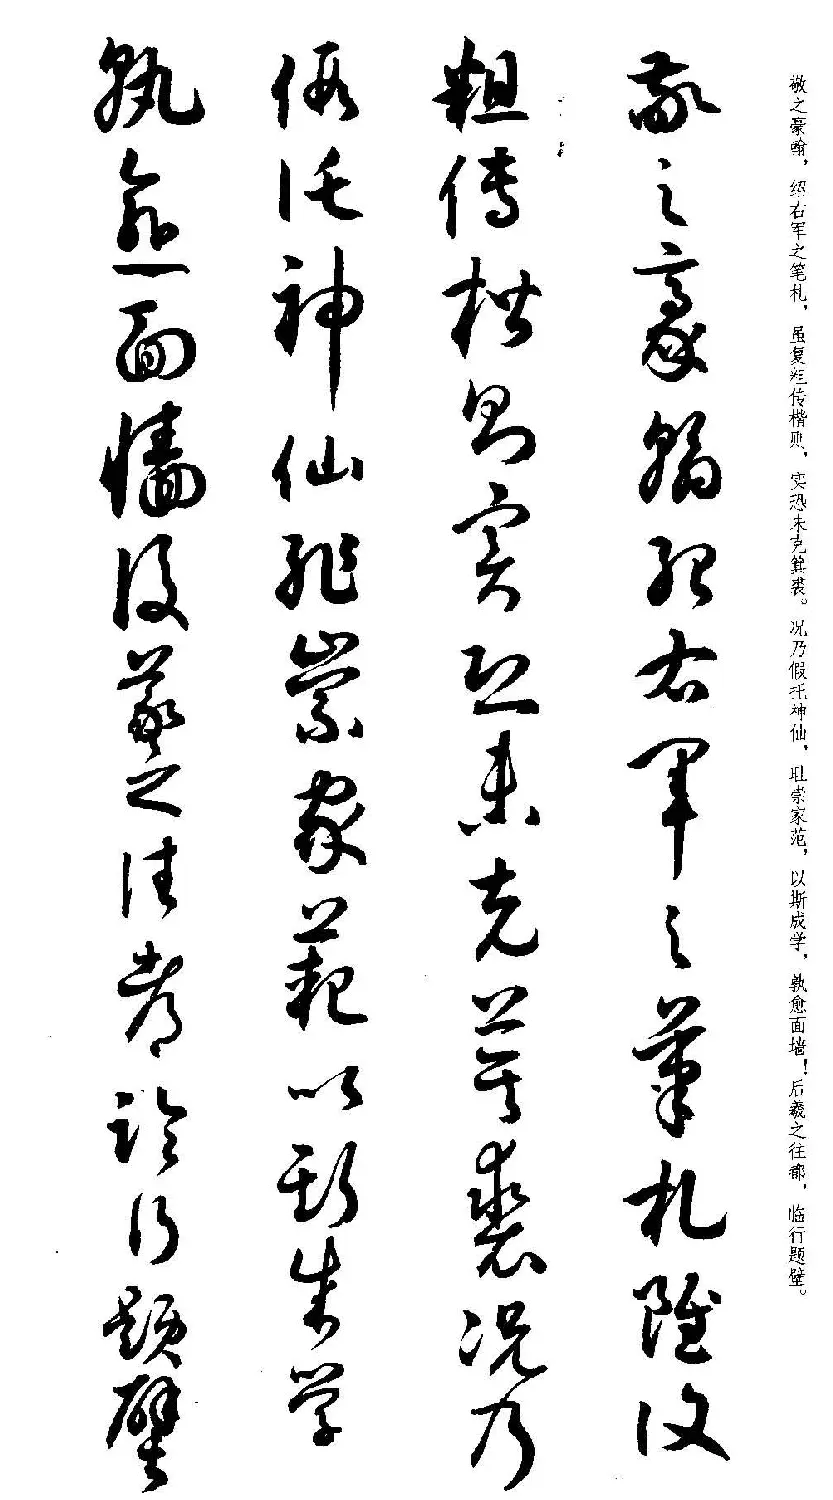 敬之豪翰，绍右军之笔札，虽复粗传楷则，实恐未克箕裘。况乃假托神仙，耻崇家范，以斯成学，孰愈面墙！后羲之往都，临行题壁。
敬之豪翰绍右军之笔札雖復
粗傳楷則實恐未克箕裘況乃
假託神仙耻崇家範以斯成学
孰愈面墻後羲之往都臨行題壁